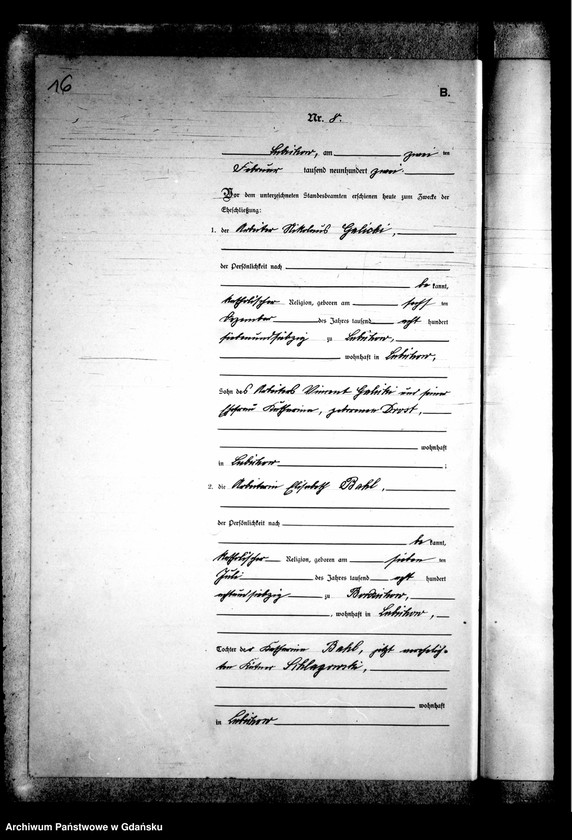 16
B.
Nr. 8.
Lubichow, am zwei ten
Februar tausend neunhundert zwei.
Vor dem unterzeichneten Standesbeamten erschienen heute zum Zwecke der
Eheschließung:
1. der Arbeiter Nikolaus Galicki,
der Persönlichkeit nach
be kannt,
katholischer Religion, geboren am sechs ten
Dezember des Jahres tausend acht hundert
siebenundsiebzig zu Lubichow,
wohnhaft in Lubichow,
Sohn des Arbeiters Vincent Galicki und seiner
Ehefrau Katharina, geborenen Drost,
wohnhaft
in Lubichow ;
2. die Arbeiterin Elisabeth Bahl,
der Persönlichkeit nach
be kannt,
katholischer Religion, geboren am sieben ten
Juli des Jahres tausend acht hundert
achtundsiebzig zu Bordzichow,
, wohnhaft in Lubichow,
Tochter der Katharina Bahl, jetzt verehelich-
ten Kätner Schlagowski,
wohnhaft
in Lubichow
Archiwum Państwowe w Gdańsku